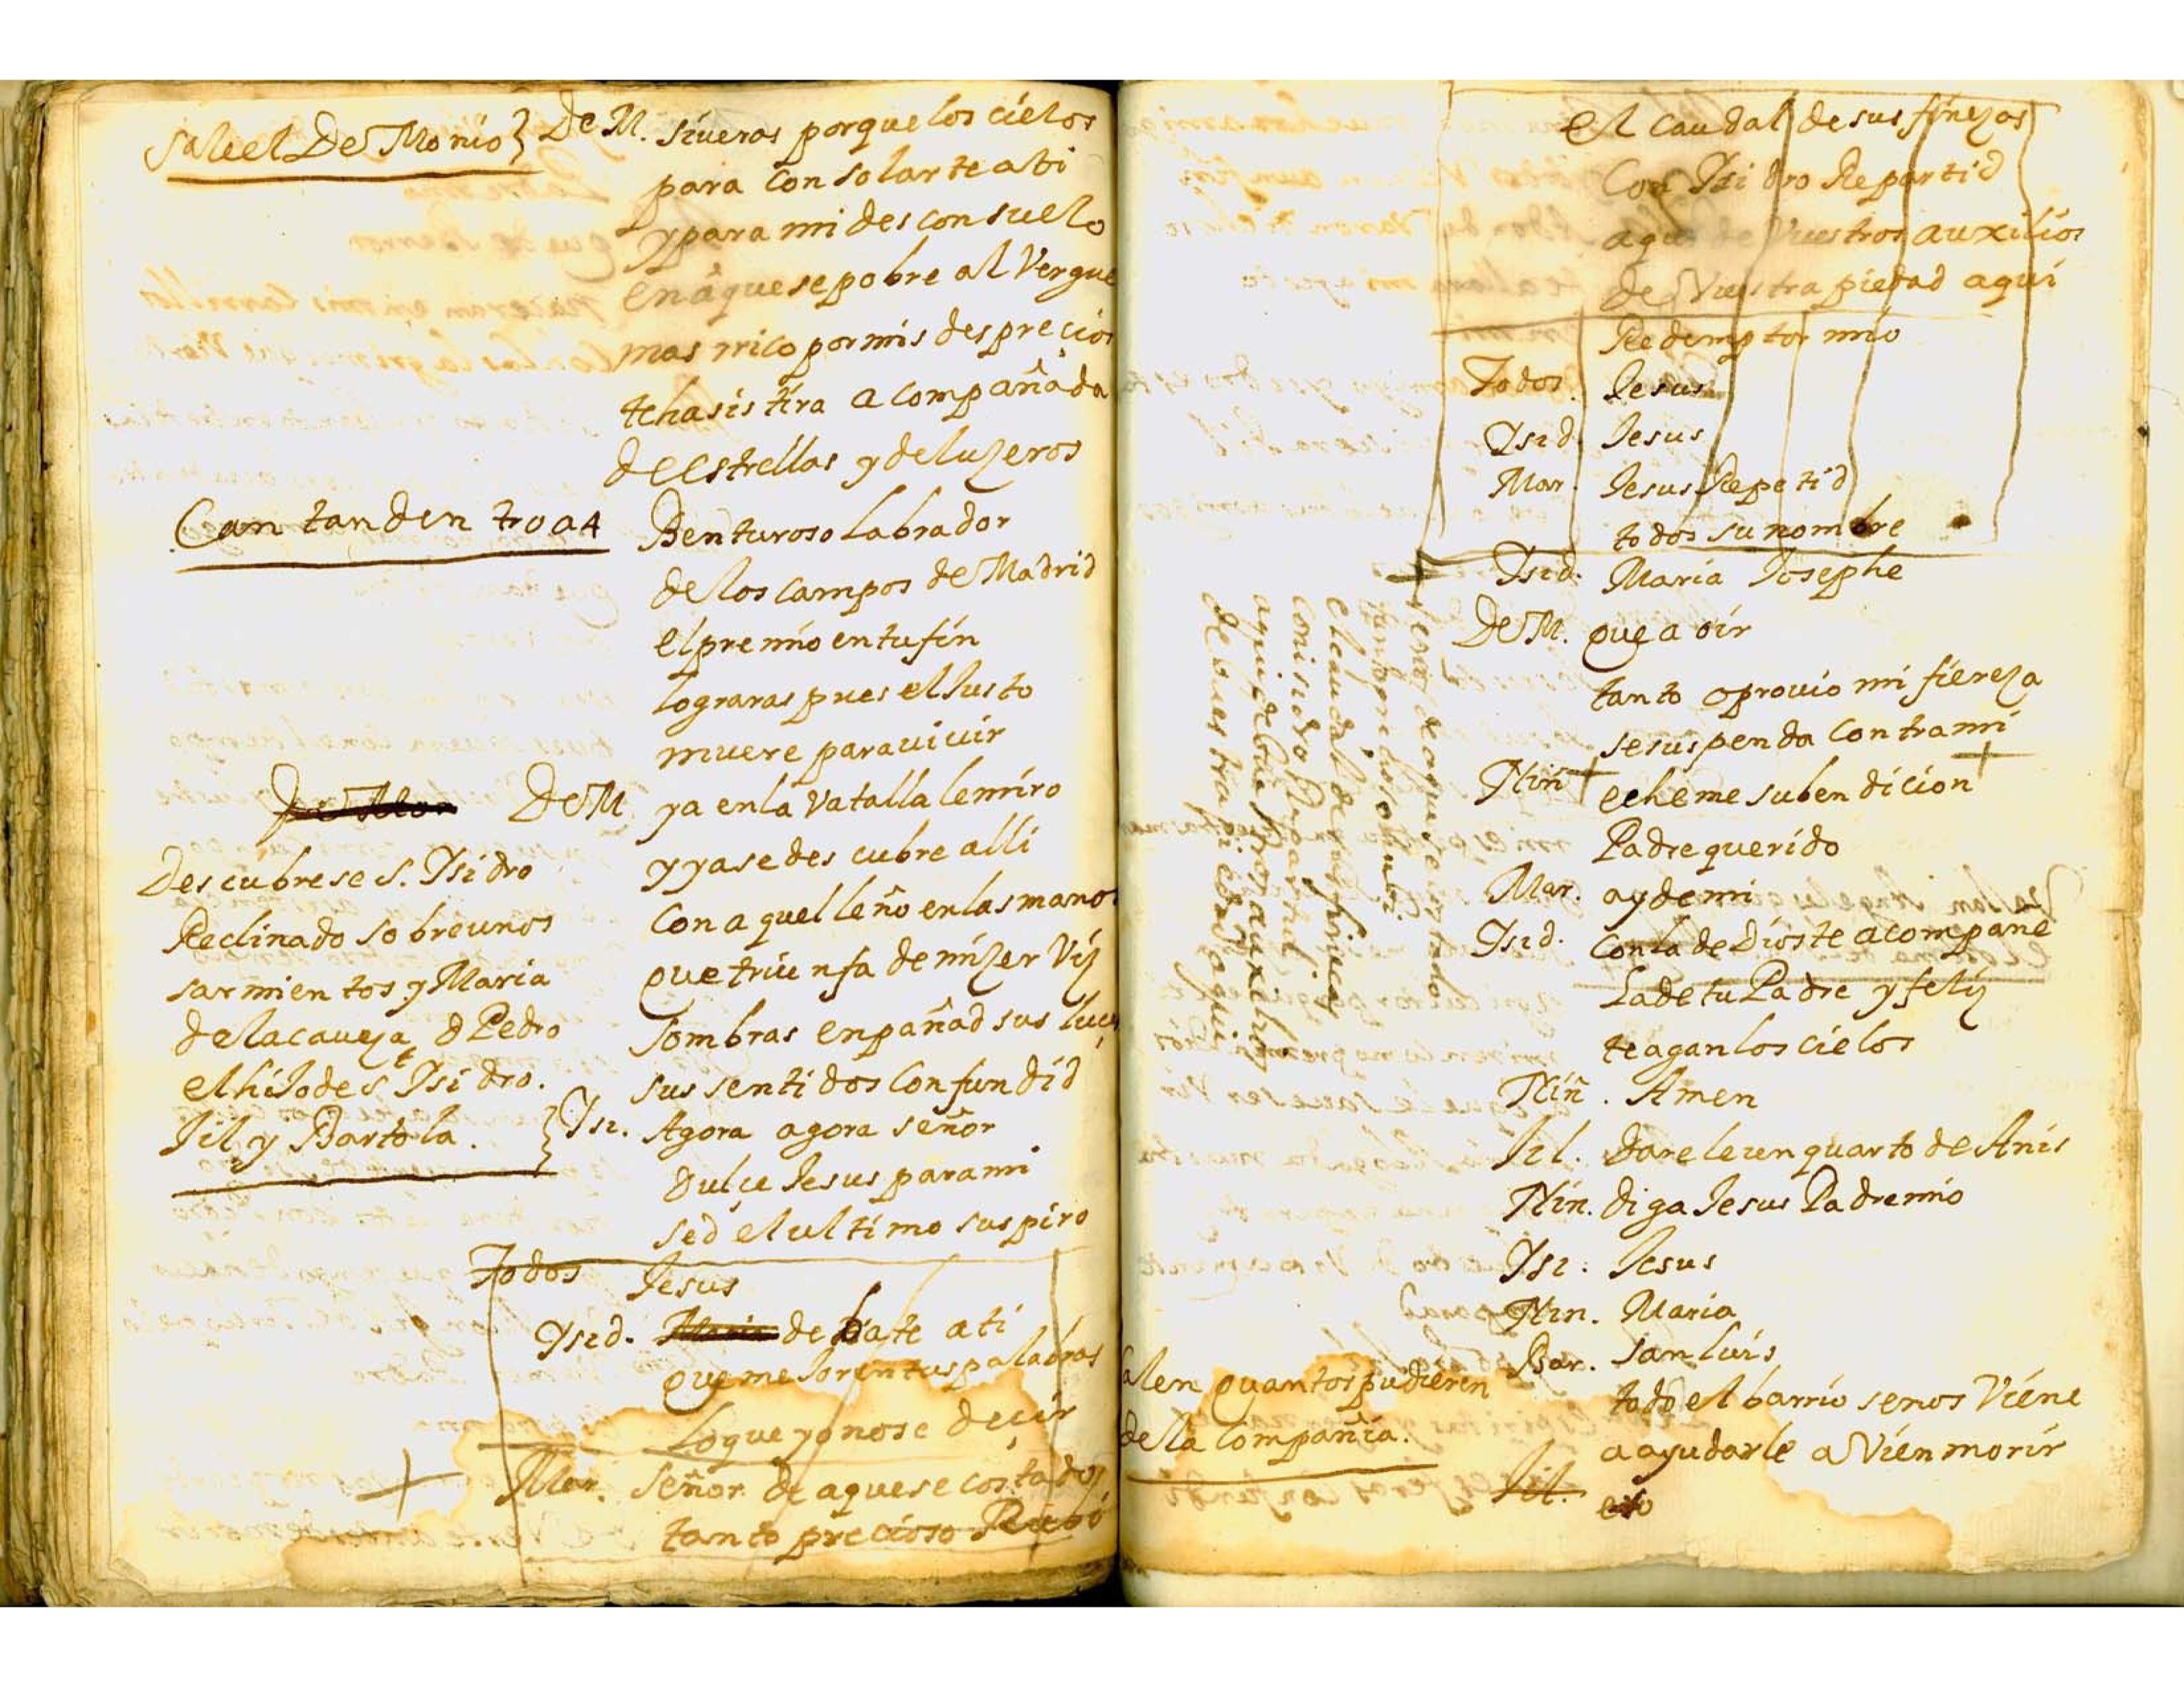 Sale el DeMonio} DeM. siueras porque los cielos
para Consolarte a ti
y para mi desconsuelo
en aquese pobre alVergue
mas rrico por mis desprecios
te hasistira acompañada
de estrellas y de luzeros
Cantan dentro a 4 Benturoso labrador
de los campos de Madrid
el premio en tu fin
lograras pues el Iusto
muere para uiuir
DeM. ya en la Vatalla le miro
y ya se descubre alli
Con aquel leño en las manos
que triunfa de mi zerViz
Sombras enpañad sus luçes
sus sentidos Confundid
Descubrese S. Ysidro
Reclinado sobre unos
sarmientos y Maria
de la caueza, d Pedro
el hiJo de St Ysidro.
Jil y Bartola. }
Ysi. Agora agora señor
Dulçe Iesus para mi
sed el ultimo suspiro
Todos Jesus
Ysid. debate a ti
que meJoren tus palabras
lo que yo no se deçir
Mar. Señor de aquese costado
tanto precioso Rubi
el Caudal de sus finezas
Con Ysidro Repartid
aqui de Vuestros auxilios
de Vuestra piedad aqui
Redemptor mio
Todos. Jesus
Ysid. Jesus
Mar. Jesus Repetid
todos su nombre
Ysid. Maria Josephe
DeM. que a oir
tanto oprouio mi fiereza
se suspenda Contra mi
Niñ echeme su bendicion
Padre querido
Mar. ay de mi
Ysid. Con la de Dios te acompañe
La de tu Padre y feliz
te agan los cielos
Niñ. Amen
Jil. Darele un quarto de Anis
Nin. diga Jesus Padre mio
Ysi. Jesus
Nin. Maria
Bar. San luis
todo el barrio se nos Viene
a ayudarle a Vien morir
Salen quantos pudieren
de la Compañia.
Jil. eso
señor de aquese costado
tanto precioso rubi
el caudal de sus finezas
con isidro Repartid
aqui de buestros auxilios
de buestra piedad aqui